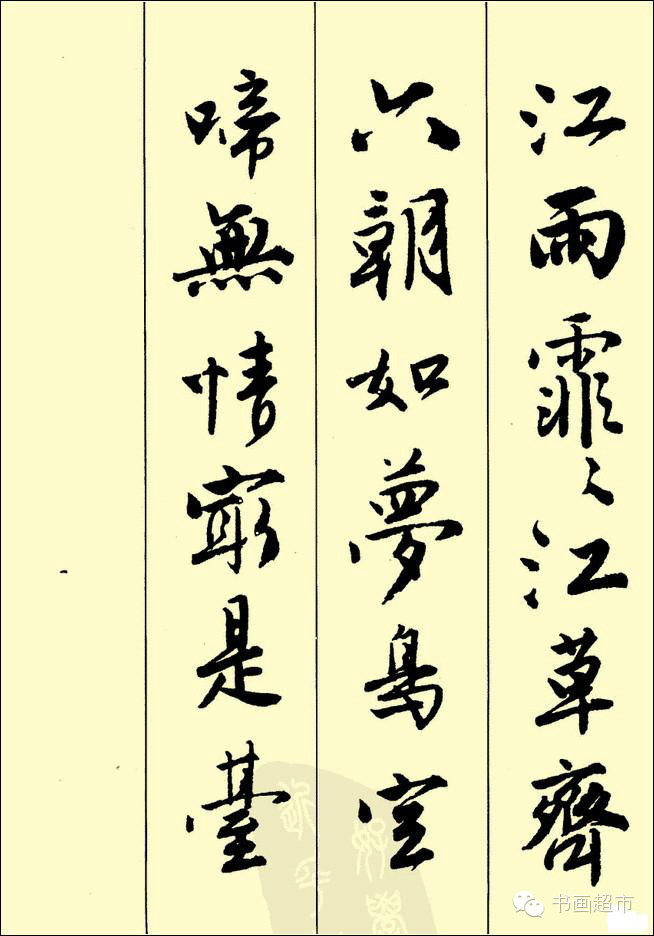 江雨霏〻江草齊
六朝如夢鳥空
啼無情最是臺
书画超市